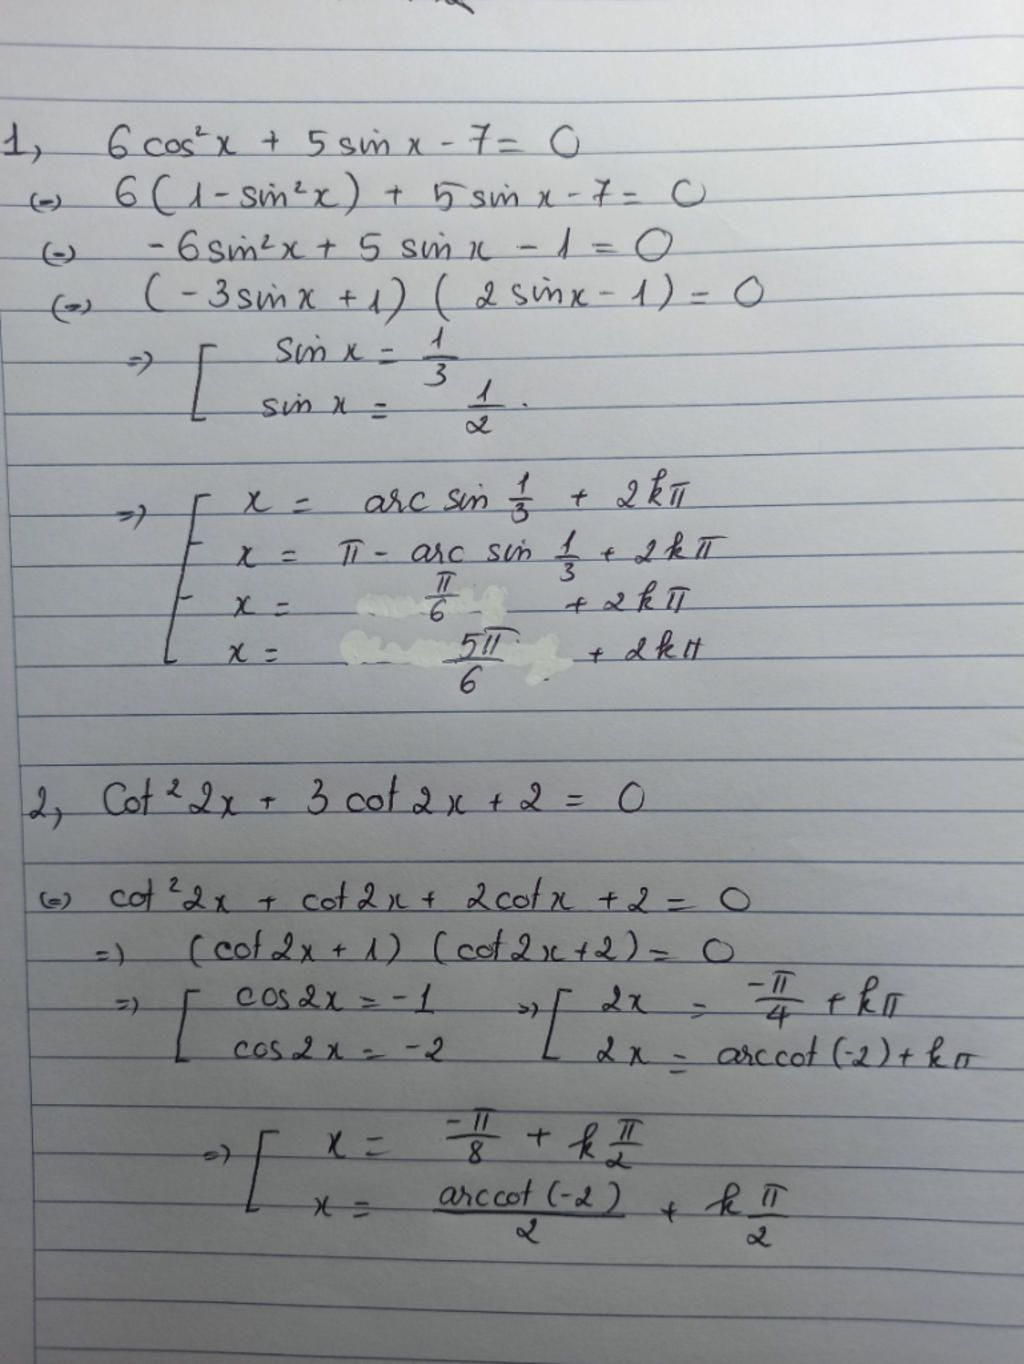 1, 6 cos²x + 5 sin x - 7 = 0
(=) 6 ( 1 - sin²x ) + 5 sin x - 7 = 0
(=) - 6 sin²x + 5 sin x - 1 = 0
(=) ( - 3 sin x + 1 ) ( 2 sin x - 1 ) = 0
=) [ sin x = 1/3
sin x = 1/2 .
=) [ x = arc sin 1/3 + 2kπ
x = π - arc sin 1/3 + 2kπ
x = π/6 + 2kπ
x = 5π/6 + 2kπ
2, Cot² 2x + 3 cot 2x + 2 = 0
(=) cot² 2x + cot 2x + 2 cot x + 2 = 0
=) (cot 2x + 1) (cot 2x + 2) = 0
=) [ cos 2x = -1 =) [ 2x = -π/4 + kπ
cos 2x = -2 2x = arccot (-2) + kπ
=) [ x = -π/8 + k π/2
x = arccot (-2)/2 + k π/2